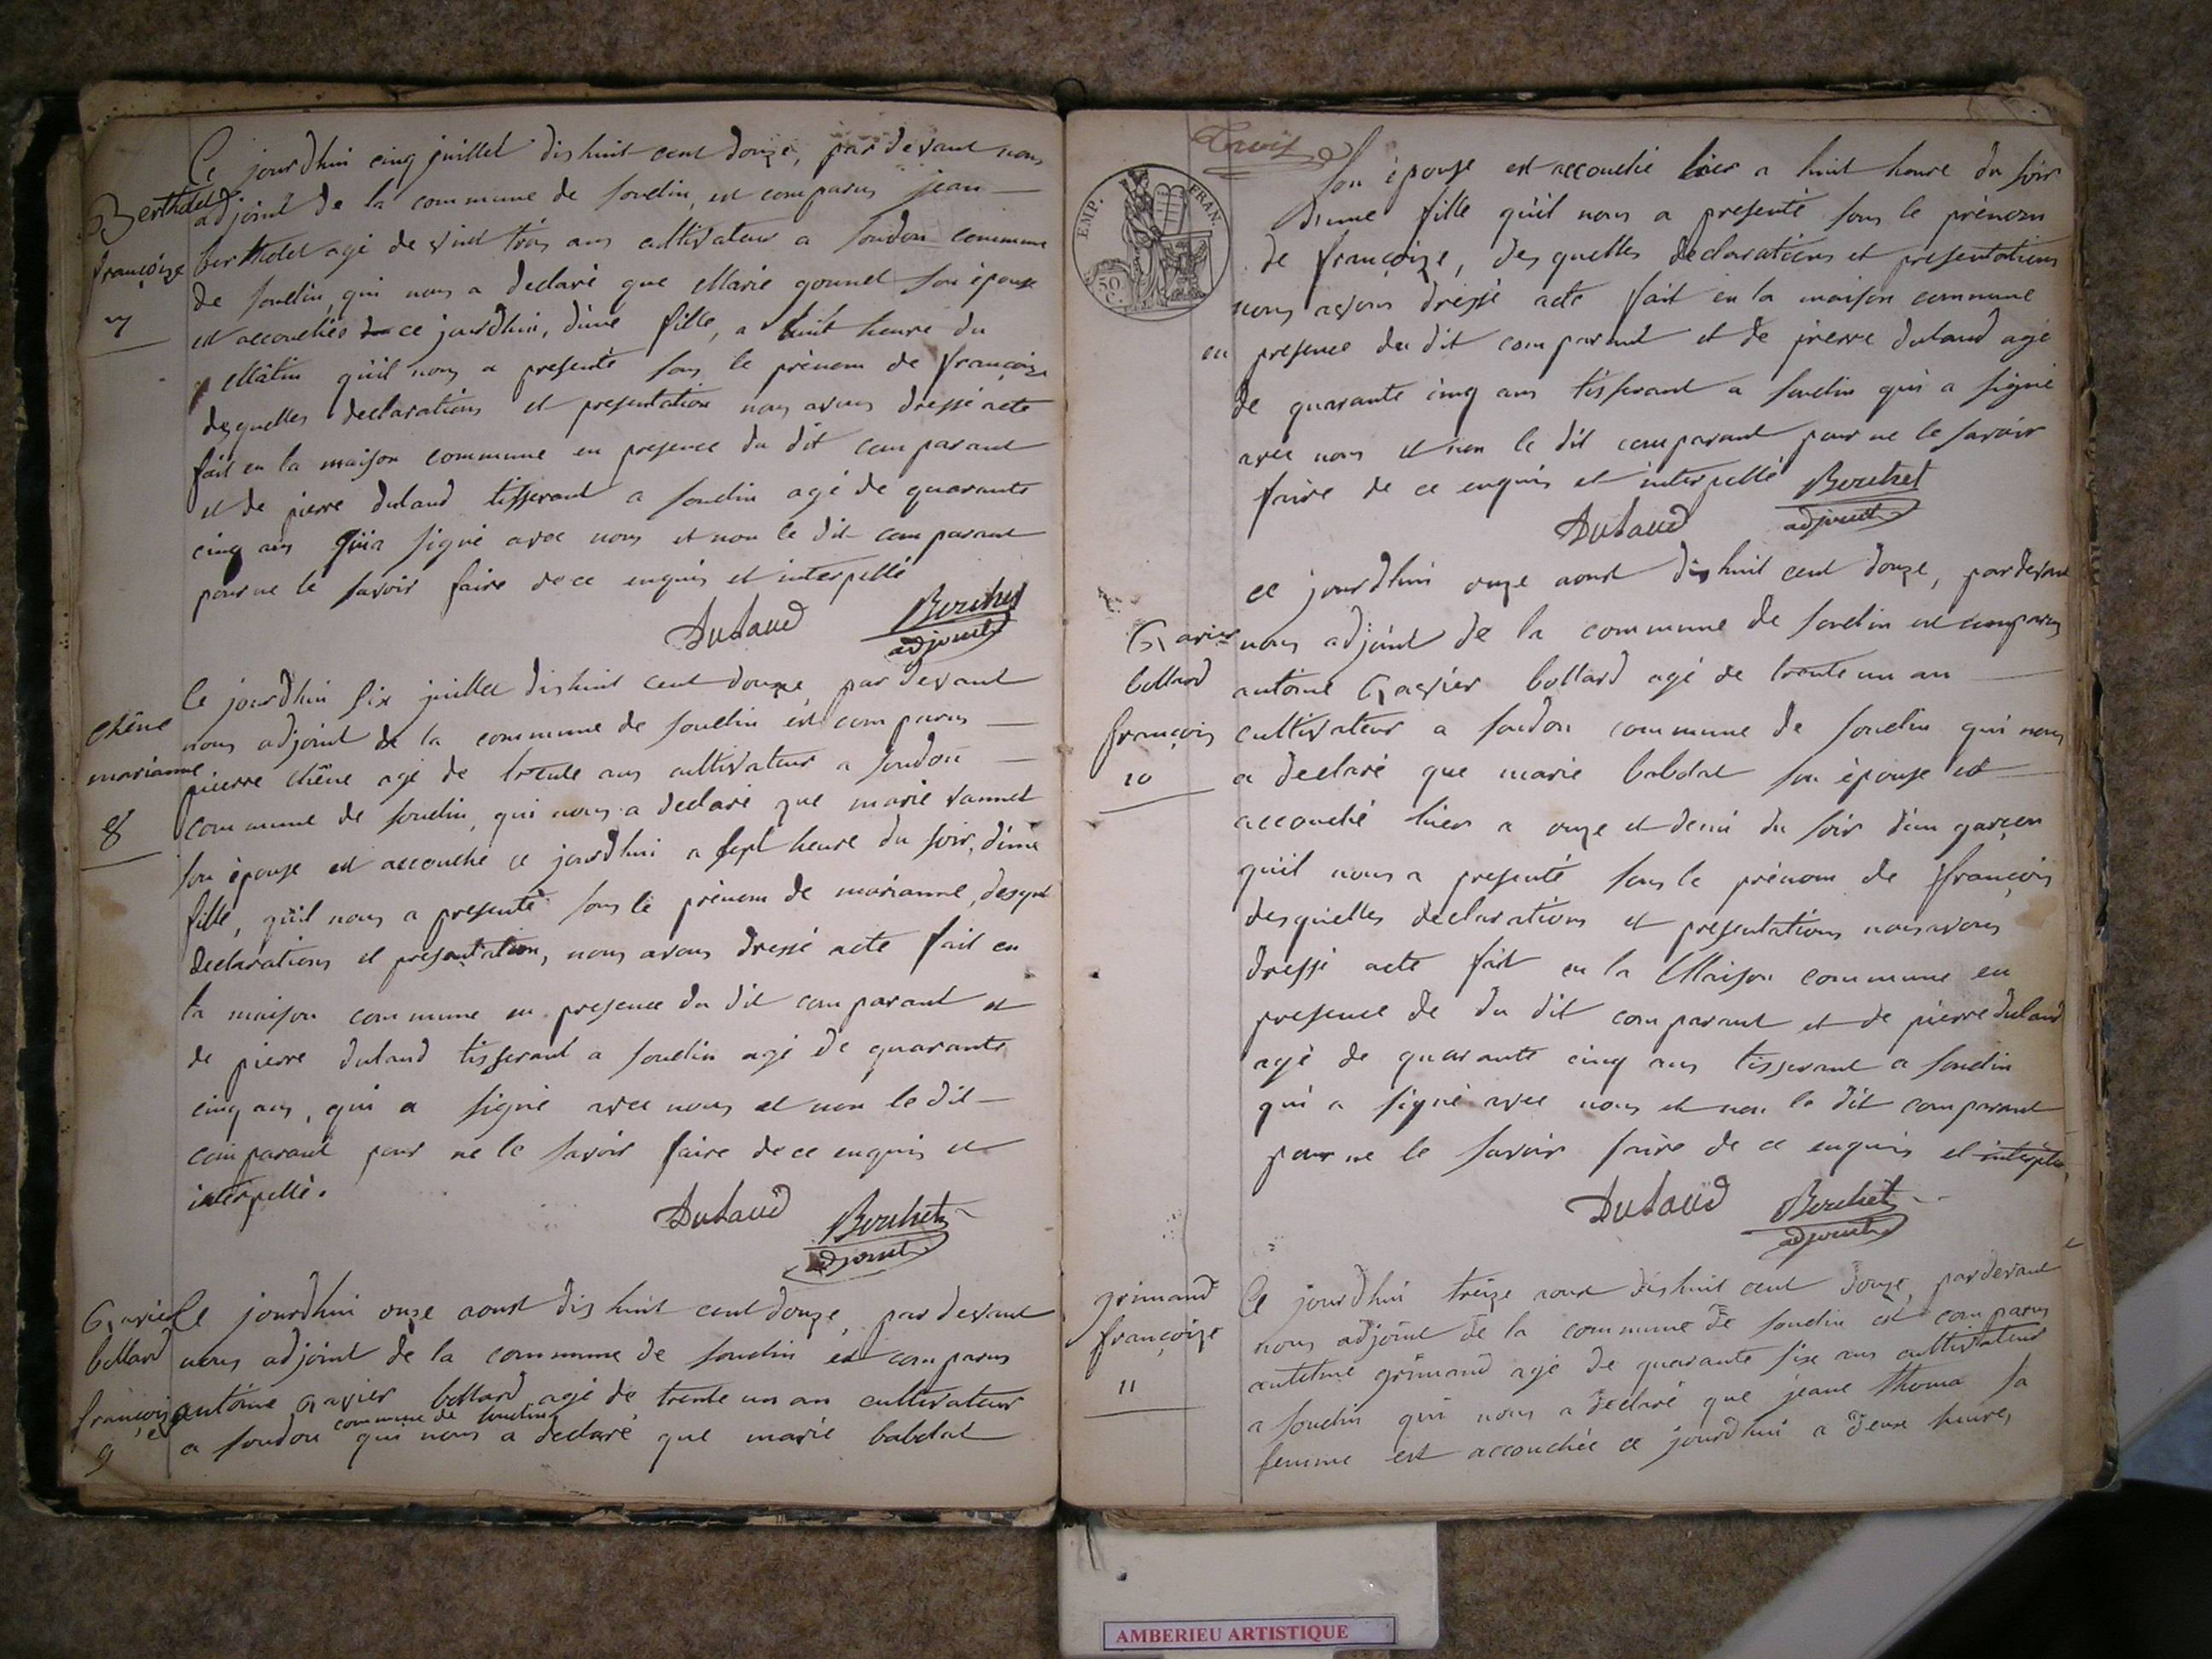 Ce jourdhui cinq juillet dishuit cent douze, par devant nous
Berthelet adjoint de la commune de soudin, est comparus jean
françoize berthelet agé de vint trois ans cultivateur a soudon commune
7 de soudin, qui nous a declaré que Marie gonnet son épouse
est accouchée de ce jourdhui, d'une fille, a huit heure du
Mâtin quïl nous a presenté sous le prénom de françoize
desquelles declarations et presentation nous avons dressé acte
fait en la maison commune en presence du dit comparant
et de pierre dulaud tisserant a soudin agé de quarante
cinq ans qui a signé avec nous et non le dit comparant
pour ne le savoir faire de ce enquis et interpellé
Dulaud Berthet
adjoint
Ce jourdhui six juillet dishuit cent douze par devant
chêne nous adjoint de la commune de soudin est comparus
marianne pierre chêne agé de trente ans cultivateur a soudon
8 commune de soudin, qui nous a declaré que marie vannet
son épouse est accouche ce jourdhui a sept heure du soir, d'une
fille, quïl nous a presenté sous le prénom de marianne, desquel
declarations et presentation, nous avons dressé acte fait en
la maison commune en presence du dit comparant et
de pierre dulaud tisserant a soudin agé de quarante
cinq ans, qui a signé avec nous et non le dit
comparant pour ne le savoir faire de ce enquis et
interpellé.
Dulaud Berthet
adjoint
Gavier Ce jourdhui onze aoust dis huit cent douze, par devant
bollard nous adjoint de la commune de soudin est comparus
françoize antoine Gavier bollard agé de trente un an cultivateur
commune de soudin
9 a soudon qui nous a declaré que marie babdat
trois
EMP. FRAN.
50 C.
son épouse est accouchée hier a huit heure du soir
d'une fille qu'il nous a presenté sous le prénom
de françoize, des quelles declarations et presentations
nous avons dressé acte fait en la maison commune
en presence du dit comparant et de pierre dulaud agé
de quarante cinq ans tisserant a soudin qui a signé
avec nous et non le dit comparant pour ne le savoir
faire de ce enquis et interpellé Berthet
Dulaud adjoint
ce jourdhui onze aoust dishuit cent douze, par devant
Gavier nous adjoint de la commune de soudin est comparus
bollard antoine Gavier bollard agé de trente un an
françois cultivateur a soudon commune de soudin qui nous
10 a declaré que marie babdat son épouse est
accouché hier a onze et demi du soir d'un garçon
qu'il nous a presenté sous le prénom de françois
desquelles declarations et presentations nous avons
dressé acte fait en la Maison commune en
presence de du dit comparant et de pierre dulaud
agé de quarante cinq ans tisserant a soudin
qui a signé avec nous et non le dit comparant
pour ne le savoir faire de ce enquis et interpellé
Dulaud Berthet
adjoint
grimaud Ce jourdhui treize aoust dishuit cent douze, par devant
françoize nous adjoint de la commune de soudin est comparus
11 antelme grimaud agé de quarante six ans cultivateur
a soudin qui nous a declaré que jeane thoma sa
femme est accouchée ce jourdhui a deux heures
AMBERIEU ARTISTIQUE